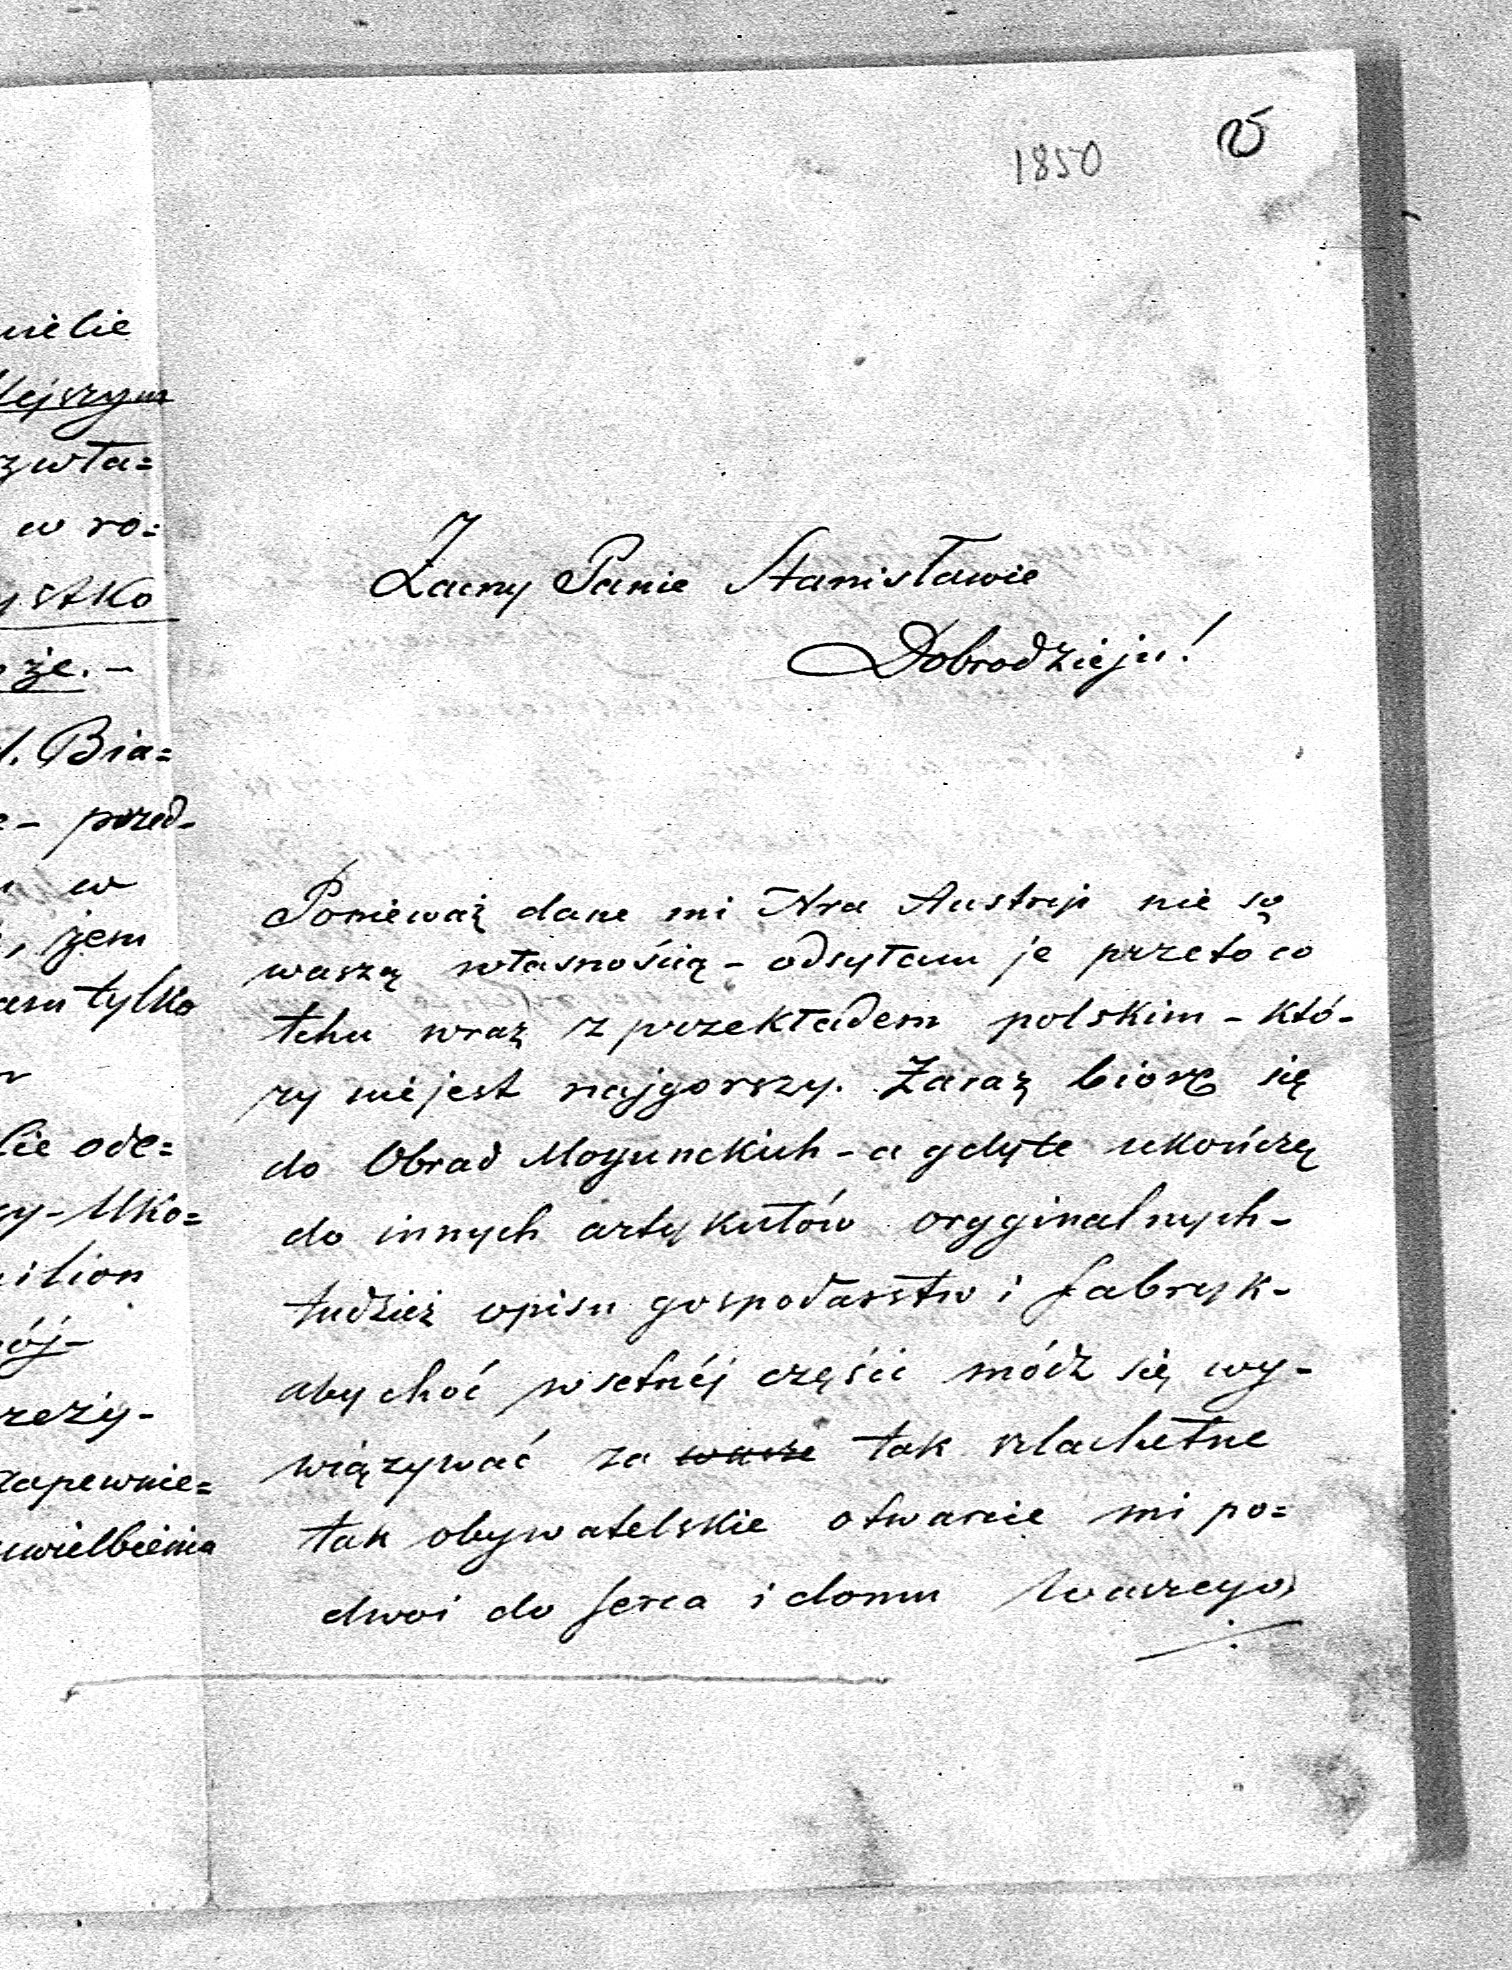 1850
25
Zacny Panie Stanisławie
Dobrodzieju!
Ponieważ dane mi Nra Austrji nie są
waszą własnością - odsyłam je przeto co
tchu wraz z przekładem polskim - któ-
ry nie jest najgorszy. Zaraz biorę się
do Obrad Mogunckich - a gdy te ukończę
do innych artykułów oryginalnych -
tudzież opisu gospodarstw i fabryk -
aby choć w setnéj części módz się wy-
wiązywać za wasze tak szlachetne
tak obywatelskie otwarcie mi po=
dwoi do serca i domu Waszego
Nejszym
zwła=
w ro=
ystko
że. -
Bia=
- przed-
w
, żem
tylko
ode=
Uko=
ilion
ój-
reży-
zapewnie=
uwielbienia